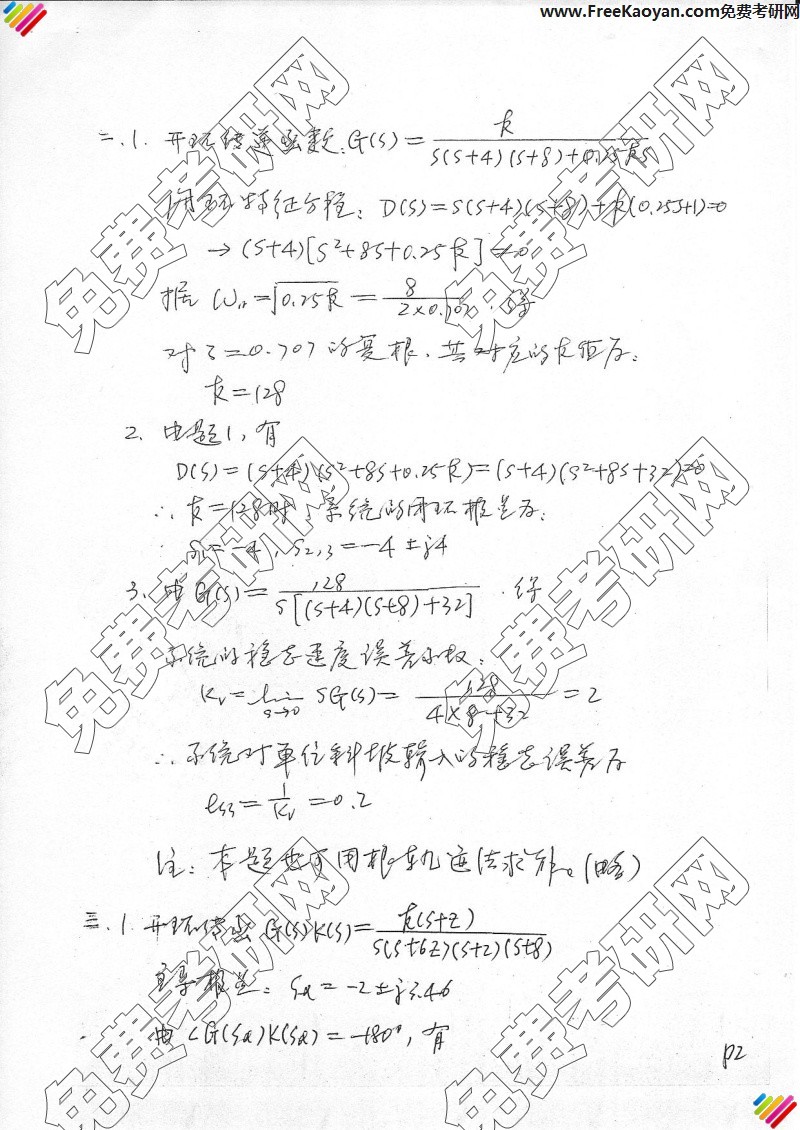 www.FreeKaoyan.com免费考研网
二.1. 开环传递函数: G(s) = k / (s(s+4)(s+8)+0.25ks)
闭环特征方程: D(s)=s(s+4)(s+8)+k(0.25s+1)=0
→ (s+4)[s²+8s+0.25k]=0
据 ωn=√(0.25k) = 8/(2×0.707), 得
对 ζ=0.707的复根, 其对应的k值为:
k=128
2. 由题1, 有
D(s)=(s+4)(s²+8s+0.25k)=(s+4)(s²+8s+32)=0
∴ k=128时 系统的闭环极点为:
s₁=-4, s₂,₃=-4±j4
3. 由 G(s)= 128 / (s[(s+4)(s+8)+32]) . 得
系统的稳态速度误差系数:
Kv=lim s→0 sG(s)= 128 / (4×8+32) = 2
∴ 系统对单位斜坡输入的稳态误差为
ess = 1/Kv = 0.2
注: 本题也可用根轨迹法求解。(略)
三.1 开环传函 G(s)K(s)= k(s+z) / (s(s+6z)(s+2)(s+8))
主导极点: sd = -2±j3.46
由 ∠G(sd)K(sd)=-180°, 有
P2
免费考研网
免费考研网
免费考研网
免费考研网
免费考研网
免费考研网